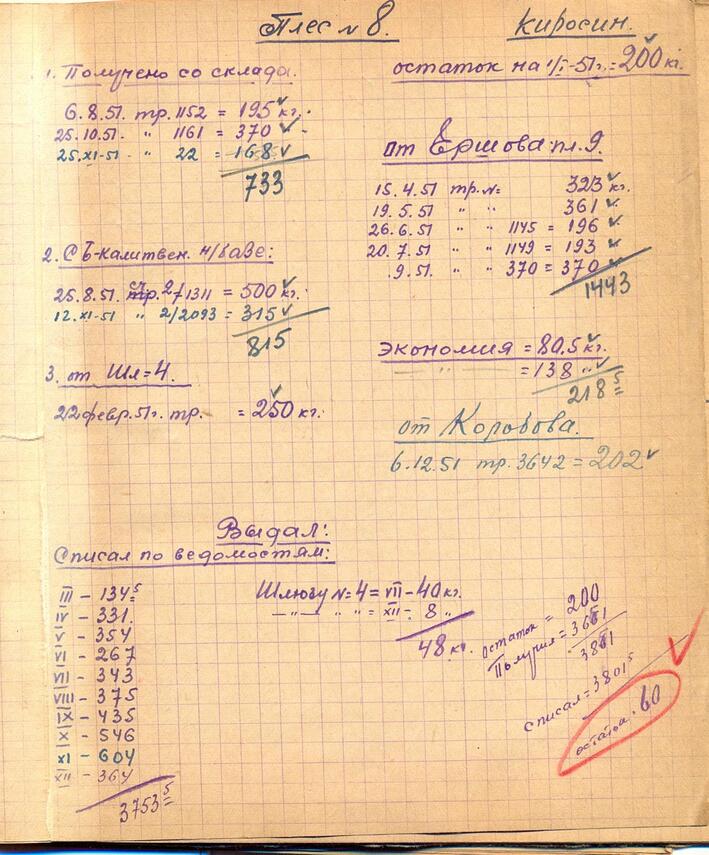 Плес № 8.
Киросин.
остаток на 1/I-51г. = 200 кг.
1. Получено со склада.
6.8.51. тр. 1152 = 195 кг.
25.10.51. " 1161 = 370
25.XI-51 " 22 = 168
733
2. С Б-калитвен. н/базе:
25.8.51. тр. 2/1311 = 500 кг.
12.XI-51 " 2/2093 = 315
815
3. от Шл = 4.
22 февр. 51г. тр. = 250 кг.
от Ершова пл. 9.
15.4.51 тр. №= 323 кг.
19.5.51 " " 361
26.6.51 " " 1145 = 196
20.7.51 " " 1149 = 193
.9.51. " " 370 = 370
1443
Экономия = 80.5 кг.
" = 138 "
218 5
от Коровова.
6.12.51 тр. 3642 = 202
Выдал:
Списал по ведомостям:
III - 134 5
IV - 331.
V - 354
VI - 267
VII - 343
VIII - 375
IX - 435
X - 546
XI - 604
XII - 364
3753 5
Шлюзу №=4 = VII - 40 кг.
—"— " " = XII - 8 "
48 кг.
остаток = 200
Получил = 3661
3861
списал = 3801 5
остаток. 60